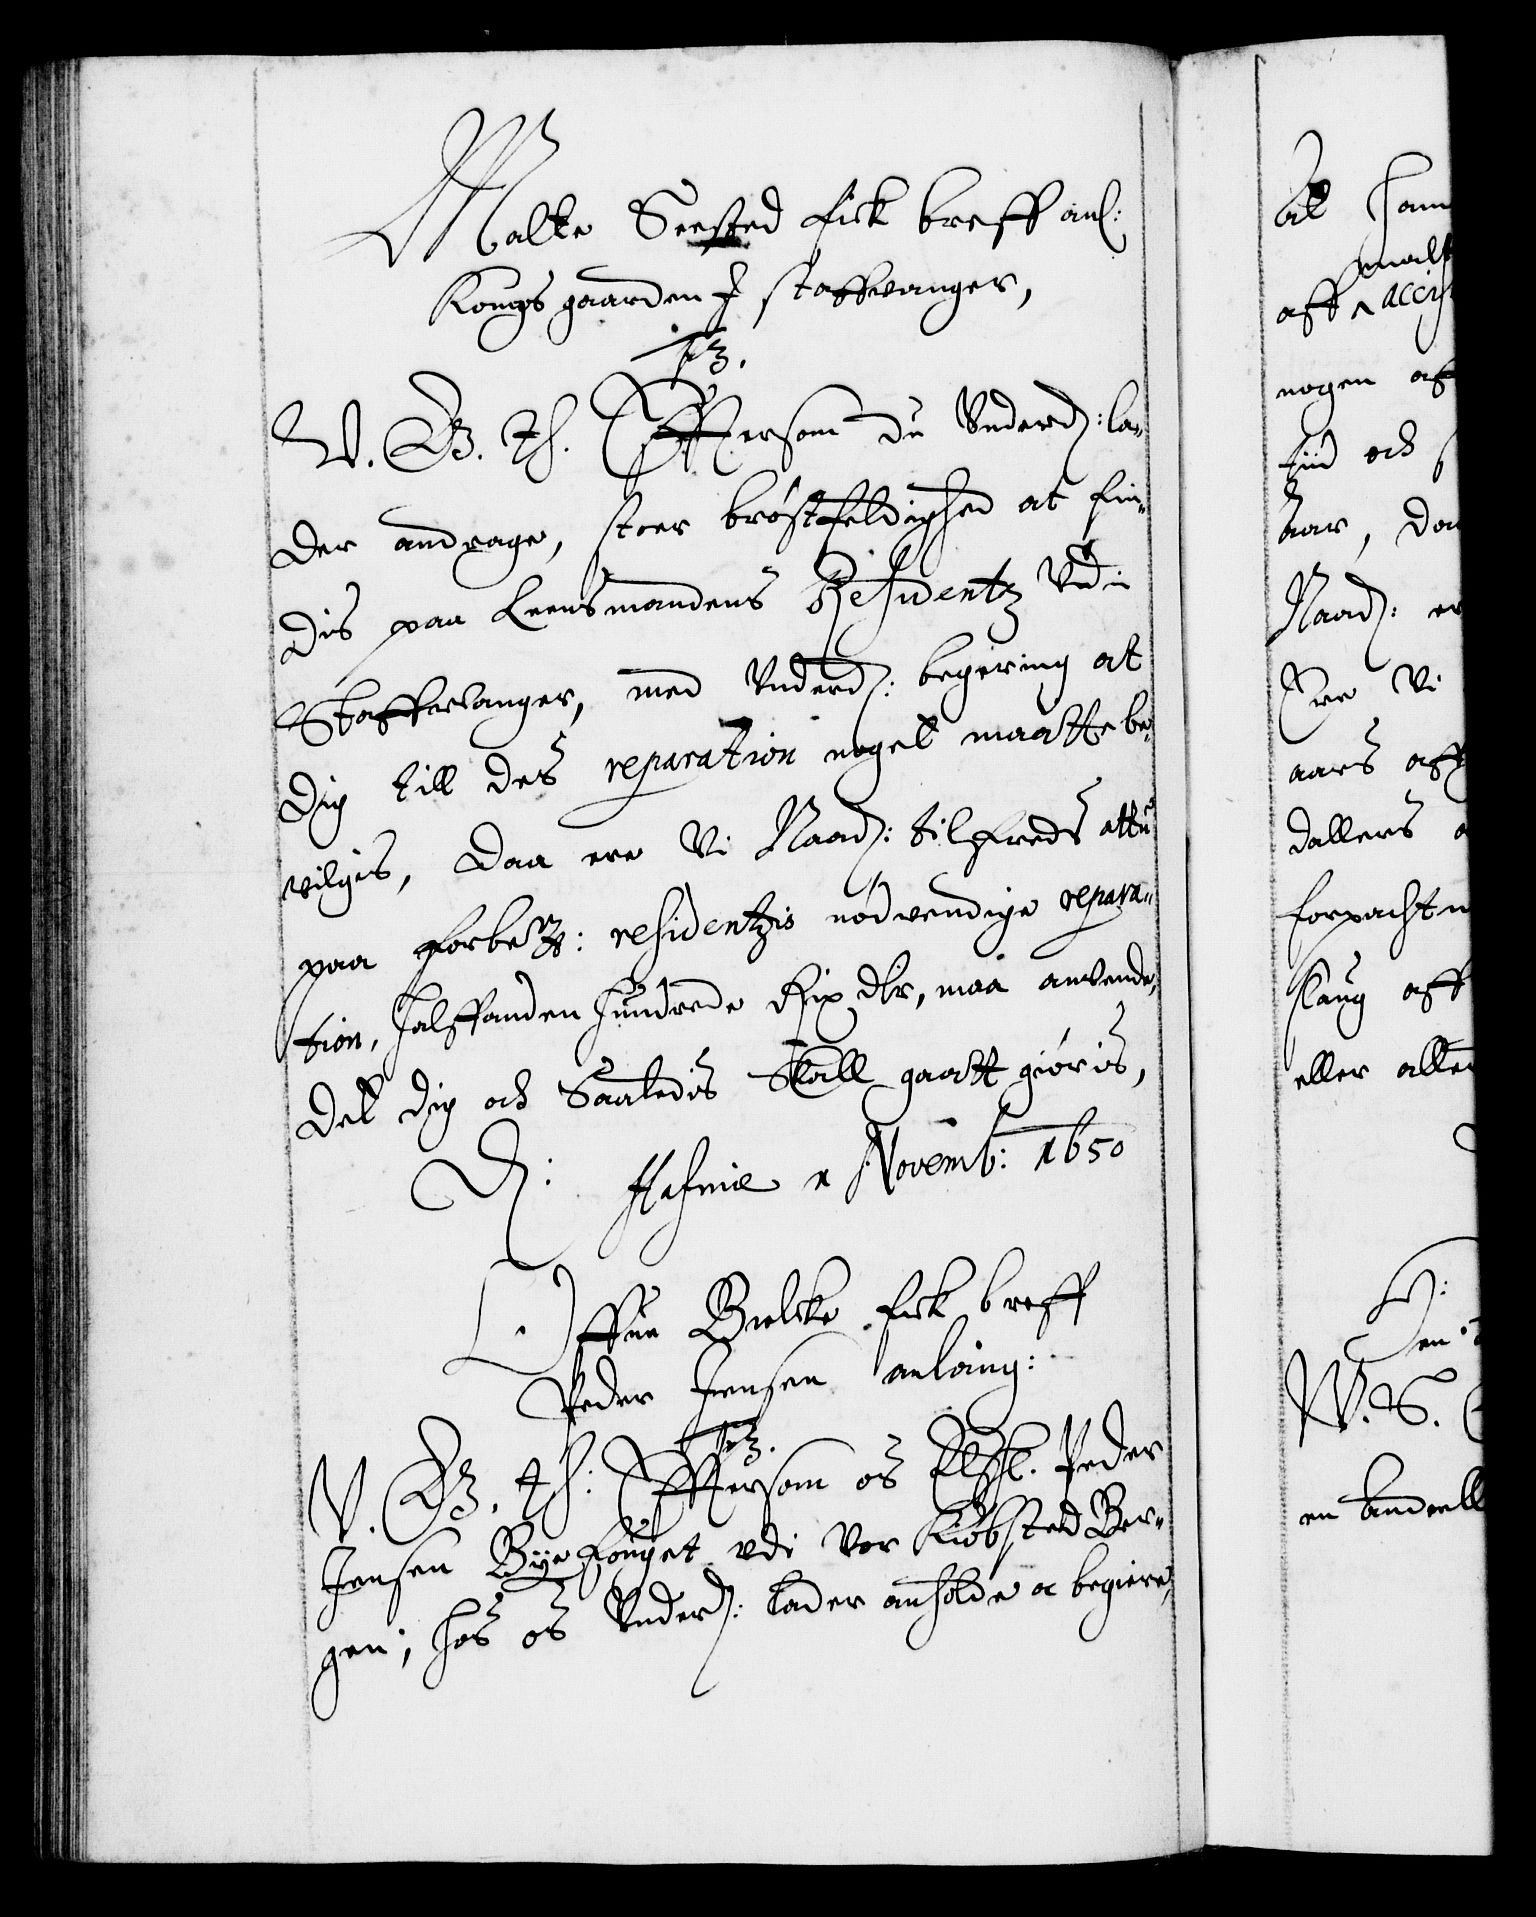 Malte Seested fick breff anl:
Kongsgaarden I staffvanger,
F3.
V. G. th. Effterson du Underd: la-
der andrage, stoer brøstfeldighed at fin-
dis paa Leensmandens Residentz Udi
Staffvanger, med Underd: begiering at
dig till des reparation noget maatte be-
vilgis, Daa ere Vi Naad: tilfreds attu
paa forbete: residentzis nødvendige repara-
tion, halffanden hundrede Rix dlr, maa anvende,
det dig och Saaledis skall gaatt giøris,
D: Hafniæ 2 Novemb: 1650
Offue Bielcke fick breff
Peder Jensen anlang:
F3.
V. G. th: Effterson os Elskl. Peder
Jensen Byefouget udi Vor Kiøbsted Ber-
gen; hos os Underd: lader anholde oc begiere,
at ham
aff accis
nogen af
tiid och
haar, da
Naad: er
Ere Vi
aars aff
dallers
forpachtn
slaug aff
eller alle
V. G.